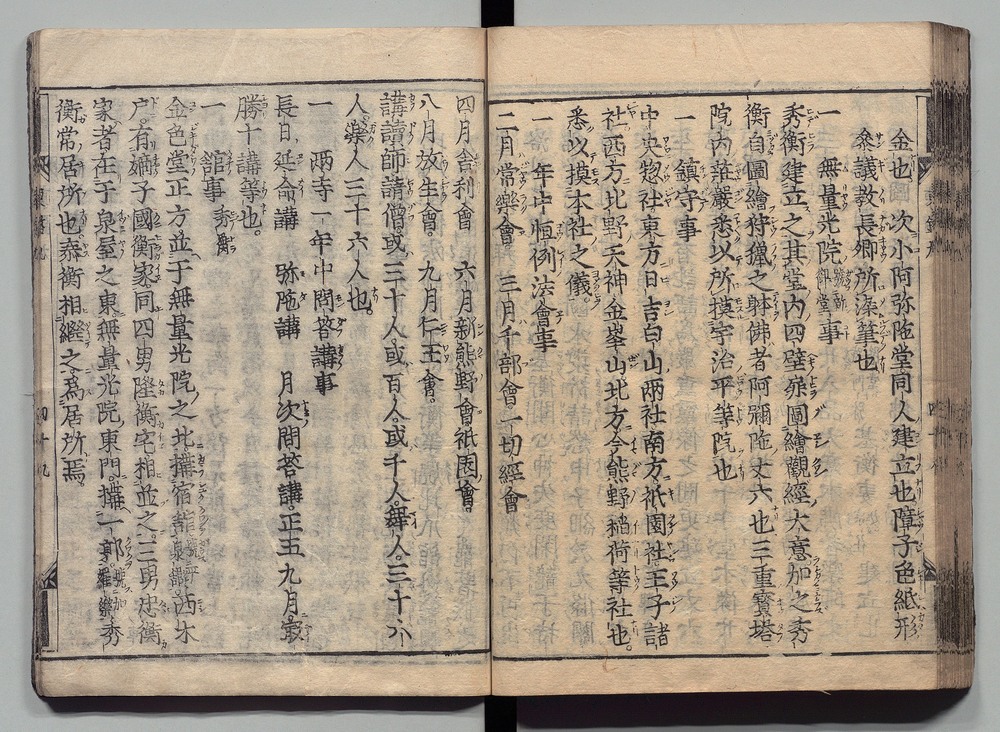 金也 次小阿弥陀堂同人建立也障子色紙形
参議教長卿所染筆也
一 無量光院 號新御堂 事
秀衡建立之其堂内四壁扉圖繪觀經大意加之秀
衡自圖繪狩獵之躰佛者阿彌陀丈六也三重寳塔
院内莊嚴悉以所摸宇治平等院也
一 鎮守事
中央惣社東方日吉白山兩社南方祇園社王子諸
社西方北野天神金峯山北方今熊野稲荷等社也
悉以摸本社之儀
一 年中恒例法會事
二月常樂會 三月千部會一切經會
四月舎利會 六月新熊野會祇園會
八月放生會 九月仁王會
講讀師請僧或三十人或百人或千人舞人三十六
人樂人三十六人也
一 兩寺一年中問答講事
長日延命講 弥陁講 月次問答講正五九月最
勝十講等也
一 舘事 秀衡
金色堂正方並于無量光院之北搆宿舘 號平泉舘 西木
戸有嫡子國衡家同四男隆衡宅相並之三男忠衡
家者在于泉屋之東無量光院東門搆一郭 號加羅樂 秀
衡常居所也泰衡相繼之爲居所焉